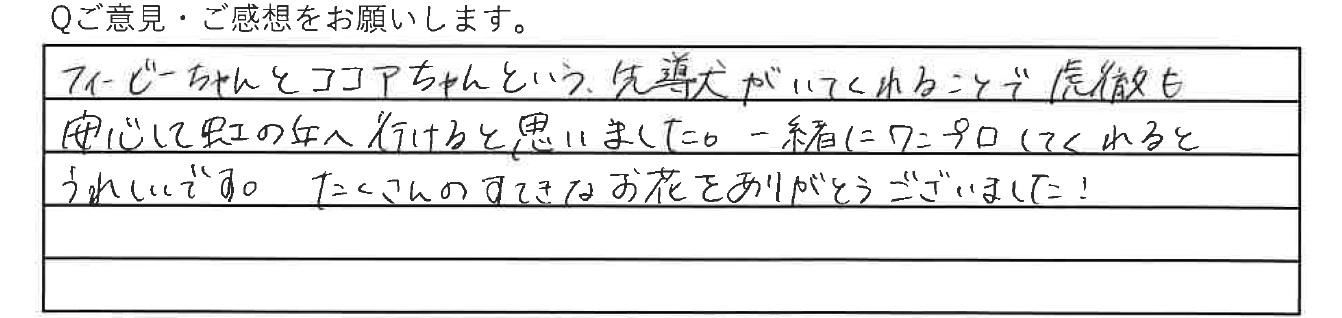 Qご意見・ご感想をお願いします。
フィービーちゃんとココアちゃんという、先導犬がいてくれることで虎徹も
安心して虹の年へ行けると思いました。一緒にワンプロしてくれると
うれしいです。 たくさんのすてきなお花をありがとうございました!